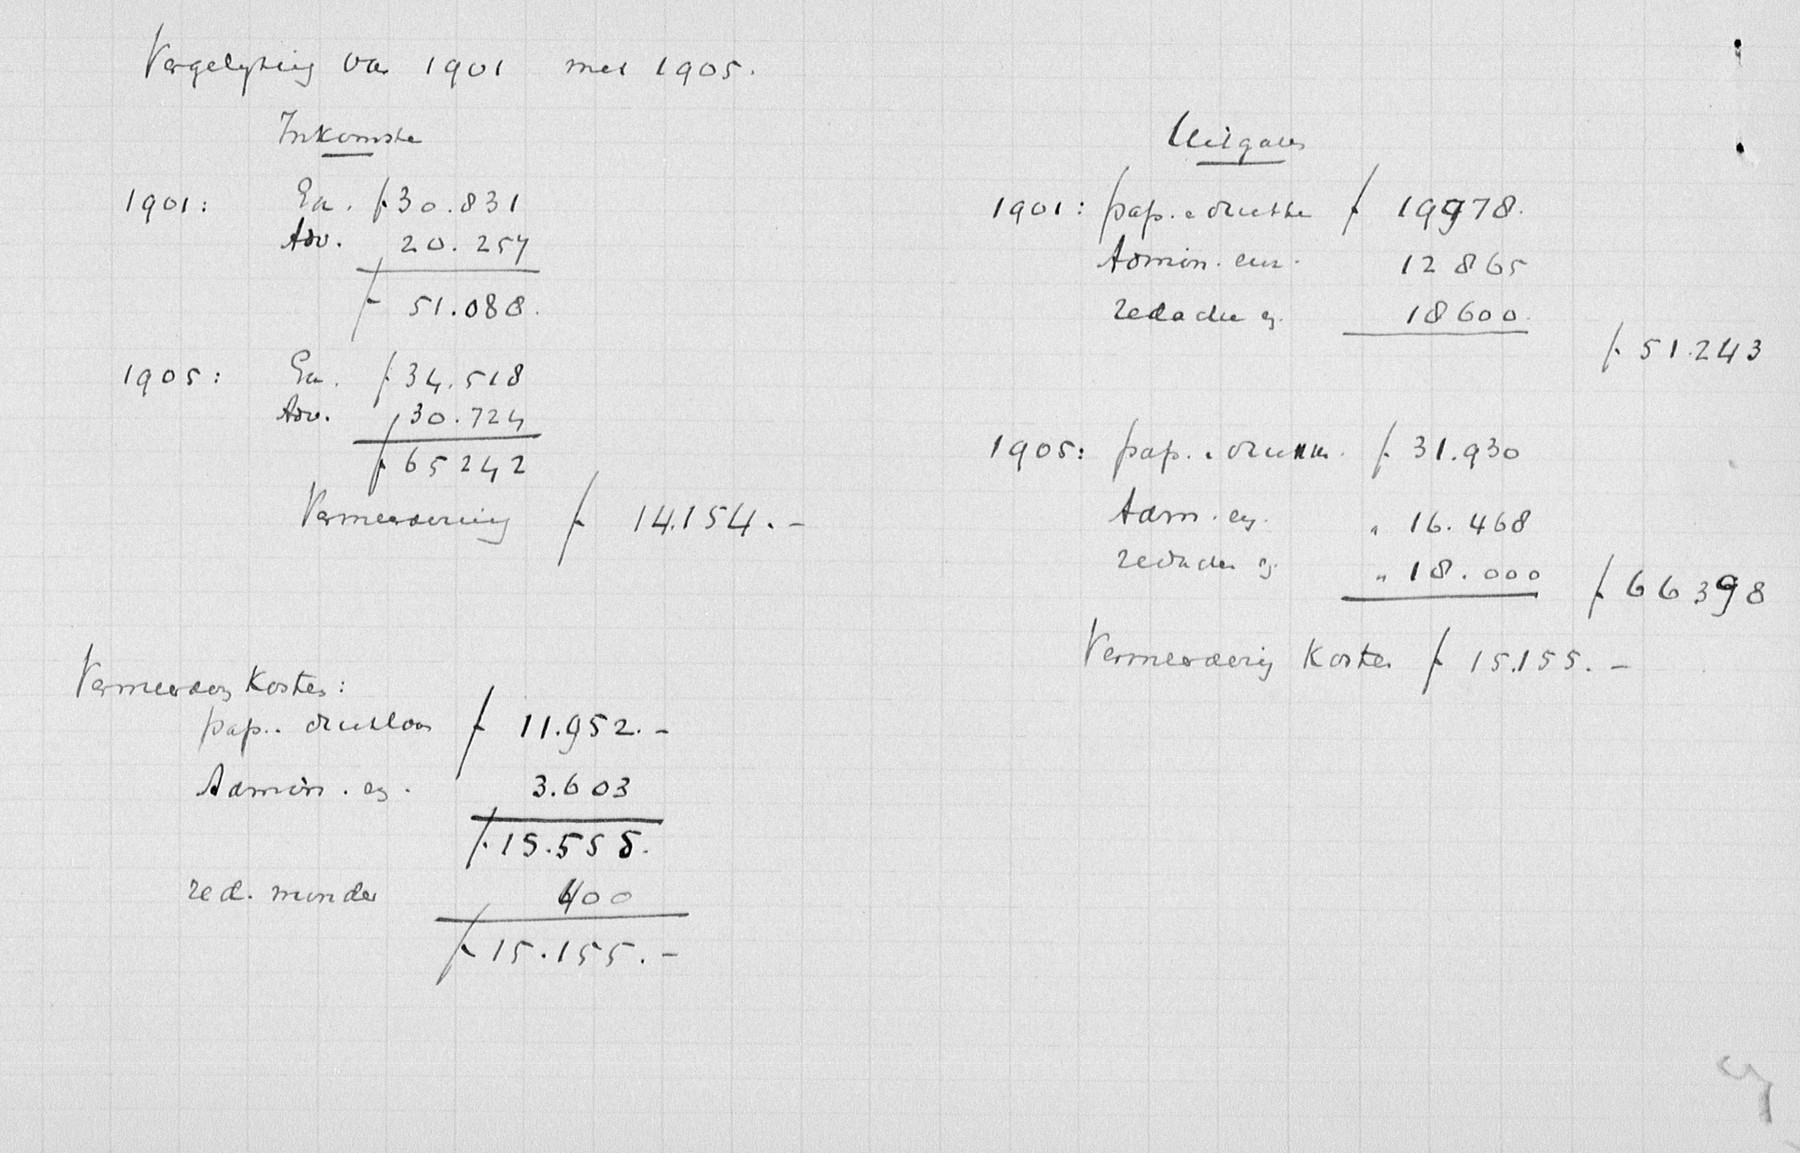 Vergelyking van 1901 met 1905.
Inkomste
1901: Ea. f 30.831
Adv. 20.257
f 51.088.
1905: Ea. f 34.518
Adv. 30.724
f 65242
Vermeerdering f 14.154.-
Uitgaven
1901: pap. e drukke f 19978.
Admin. enz. 12 865
redactie ez. 18600.
f 51.243
1905: pap. e drukk. f 31.930
Adm. ez. " 16.468
redactie ez " 18.000 f 66398
Vermeerderig Kosten f 15.155.-
Vermeerderg Kosten:
pap.. drukloon f 11.952.-
Admin. ez. 3.603
f 15.555.
red. minder 400
f 15.155.-